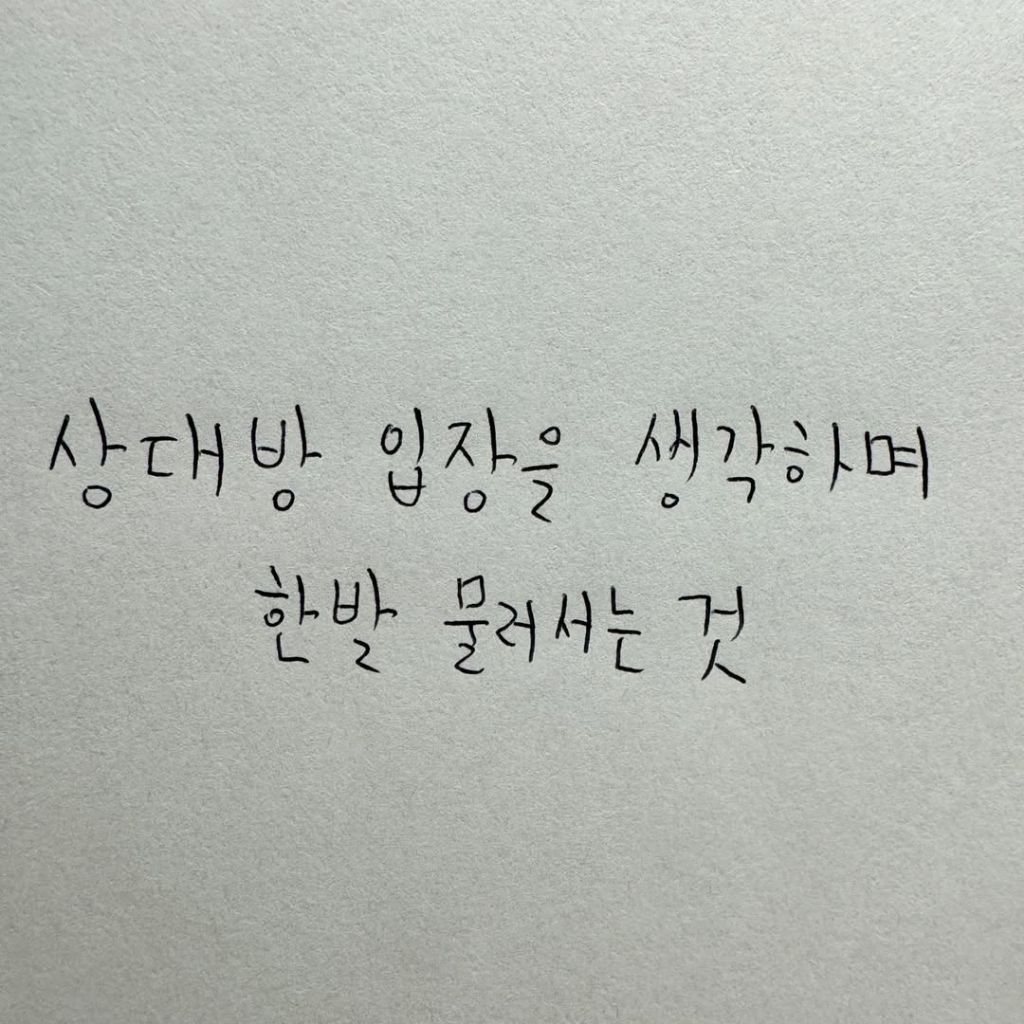 상대방 입장을 생각하며
한발 물러서는 것